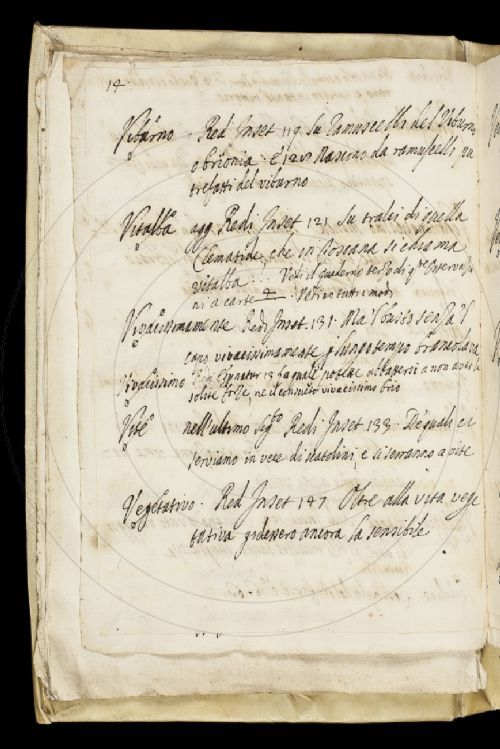 14
Viburno. Red Inset 119 Su ramuscelli del Viburno
o brionia. E 121 Nascono da ramuscelli pu
trefatti del viburno
Vitalba agg Redi Inset 121 Su tralci di quella
Clematide che in Toscana si chiama
vitalba ... Vedi il quaderno
ni a carte Vedi in tutti i modi
Vivacissimamente Redi Inset. 131. Ma 'l busto senza 'l
capo vivacissimamente p lungo tempo brancolava
Vivacissimo
solite forze, ne il vivacissimo brio
Vite nell'ultimo Sig.to Redi Inset 133. De quali ci
serviamo in vece di scatolini, e si serranno a vite
Vegetativo. Red Inset 147 Oltre alla vita vege
tativa godessero ancora la sensibile